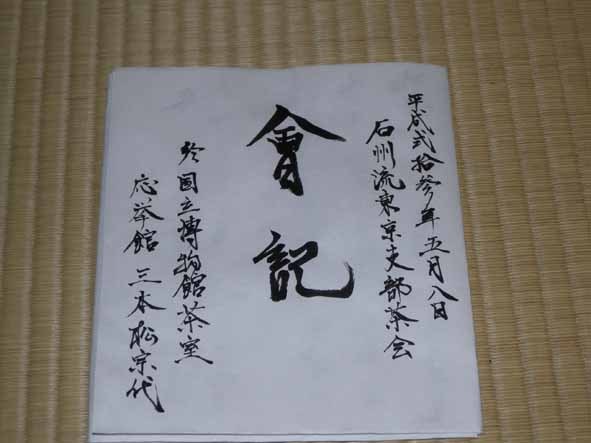 平成弐拾参年五月八日
石州流東京支部茶会
會記
於国立博物館茶室
応挙館 三本松宗代